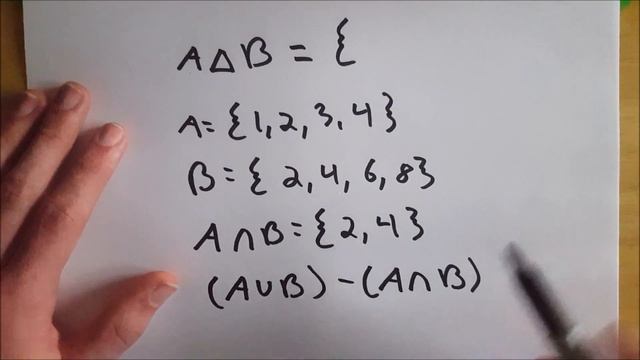 A△B = {
A = {1, 2, 3, 4}
B = { 2, 4, 6, 8}
A∩B = {2, 4}
(A∪B) - (A∩B)